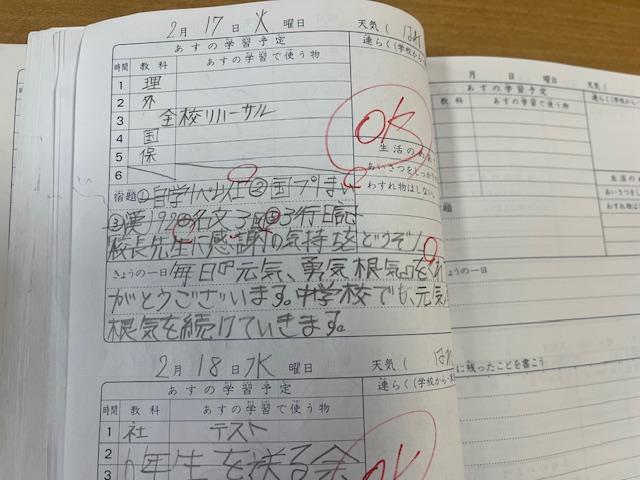 2月17日火曜日 天気( はれ
あすの学習予定 連らく(学校から
時間 教科 あすの学習で使う物
1 理
2 外
3 全校リハーサル
4 国
5 保
6
OK
生活のめあ
あいさつをしっかり
わすれ物はしない
宿題①自学1ページ以上②国プリまい
③漢192④名文3回⑤3行日記
校長先生に感謝の気持ちをどうぞ!
きょうの一日 毎日の元気、勇気根気をあり
がとうございます。中学校でも、元気、
根気を続けていきます。
2月18日水曜日 天気( はれ
あすの学習予定 連らく(学校から
時間 教科 あすの学習で使う物
1 社 テスト
2 6年生を送る会
3
OK
月 日 曜日 天気(
あすの学習予定 連らく(学校
教科 あすの学習で使う物
生活の
あいさつを
わすれ物は
題
ょうの一日
に残ったことを書こう